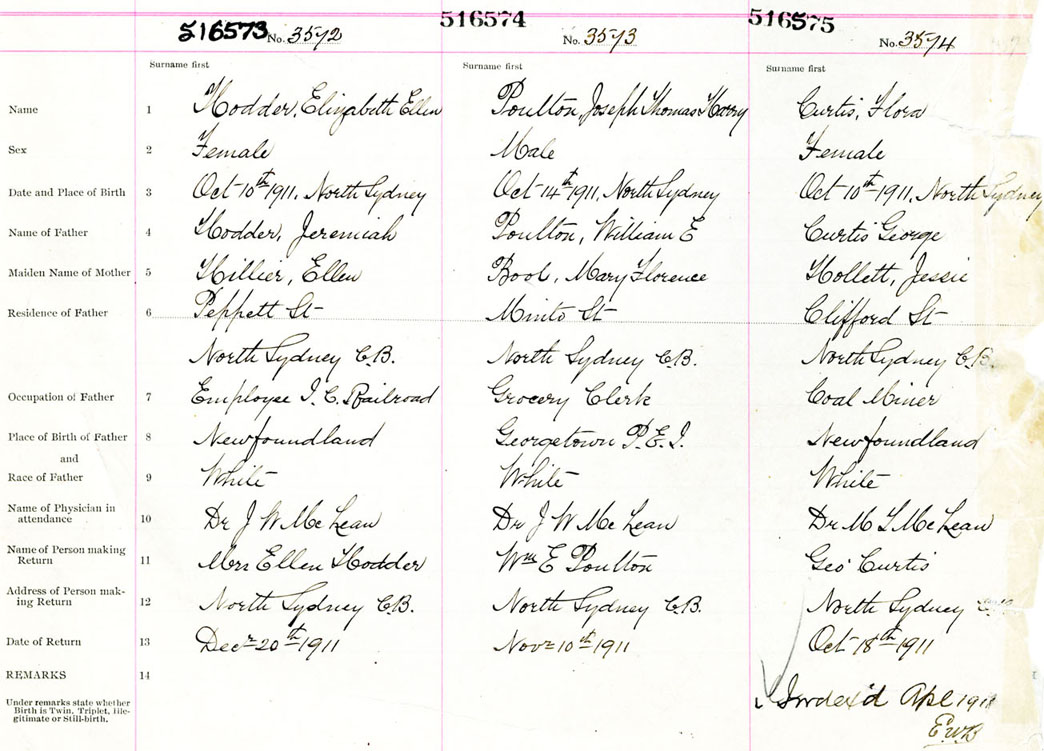 516573 No. 3572 516574 No. 3573 516575 No. 3574
Surname first Surname first Surname first
Name 1 Hodder, Elizabeth Ellen Poulton, Joseph Thomas Harry Curtis, Flora
Sex 2 Female Male Female
Date and Place of Birth 3 Oct 10th 1911, North Sydney Oct 14th 1911, North Sydney Oct 10th 1911, North Sydney
Name of Father 4 Hodder, Jeremiah Poulton, William E Curtis George
Maiden Name of Mother 5 Hillier, Ellen Bool, Mary Florence Hollett, Jessie
Residence of Father 6 Peppett St Minto St Clifford St
North Sydney C.B. North Sydney C.B. North Sydney C.B.
Occupation of Father 7 Employee I. C. Railroad Grocery Clerk Coal Miner
Place of Birth of Father 8 Newfoundland Georgetown P.E.I. Newfoundland
and
Race of Father 9 White White White
Name of Physician in
attendance 10 Dr J W McLean Dr J W McLean Dr M L McLean
Name of Person making
Return 11 Mrs Ellen Hodder Wm E Poulton Geo Curtis
Address of Person mak-
ing Return 12 North Sydney C.B. North Sydney C.B. North Sydney
Date of Return 13 Decr 20th 1911 Novr 10th 1911 Oct 18th 1911
REMARKS 14
Under remarks state whether
Birth is Twin, Triplet, Ille-
gitimate or Still-birth.
Index'd Apl
E.W.B